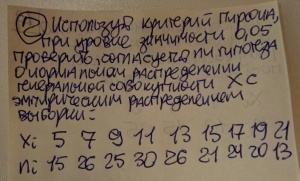 ② Используя критерий Пирсона,
при уровне значимости 0,05
проверить, согласуется ли гипотеза
о нормальном распределении
генеральной совокупности X с
эмпирическим распределением
выборки:
Xi 5 7 9 11 13 15 17 19 21
ni 15 26 25 30 26 21 24 20 13